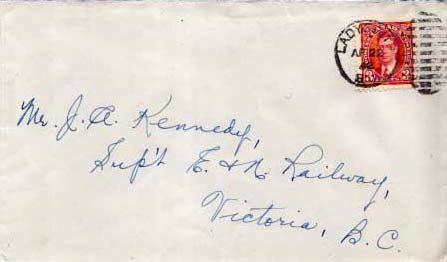 LADY
AP 22
42
CANADA
3 3
Mr. J. A. Kennedy,
Sup't E. & N. Railway,
Victoria, B.C.